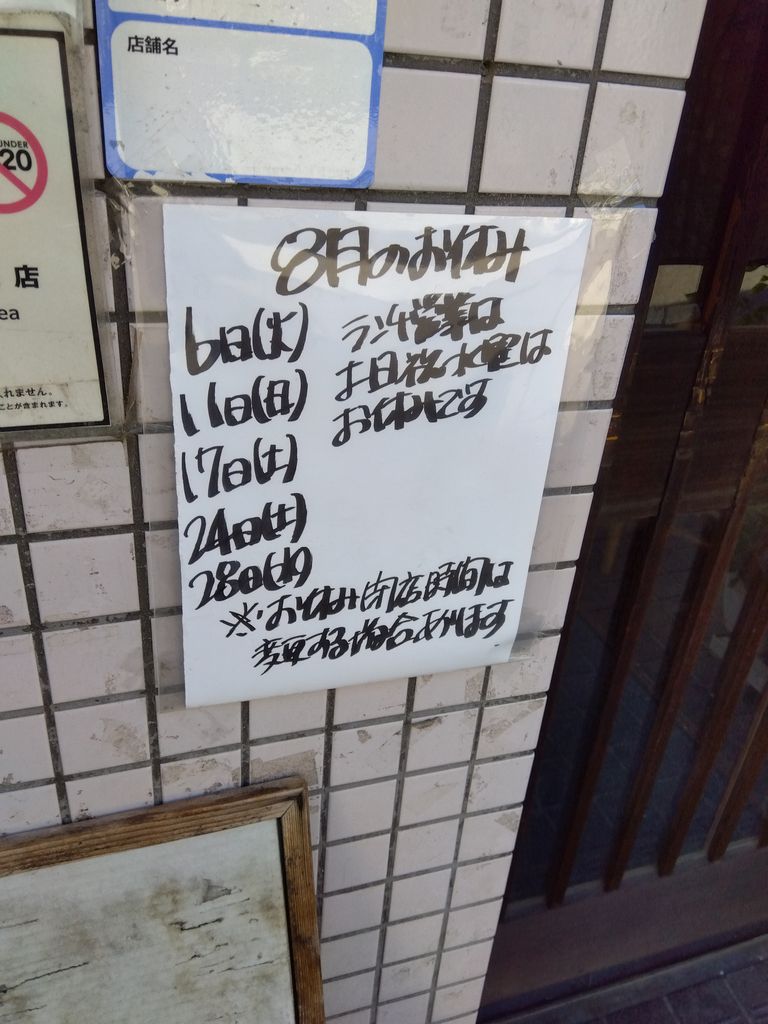 店舗名
UNDER
20
店
ea
れません。
ことが含まれます。
8月のお休み
6日(火)
11日(日)
17日(土)
24日(土)
28日(水)
ランチ営業は
土日祝水曜は
お休みです
※お休み閉店時間は
変更する場合あります